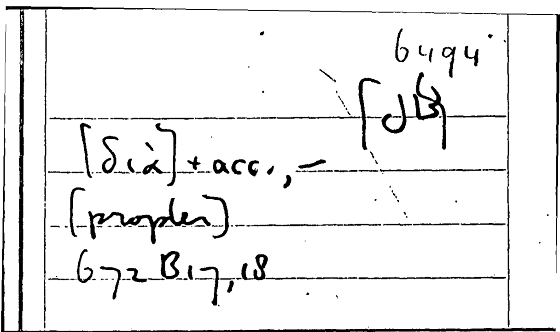 6494
[διὰ] + acc., –
[propter]
672 B17, 18